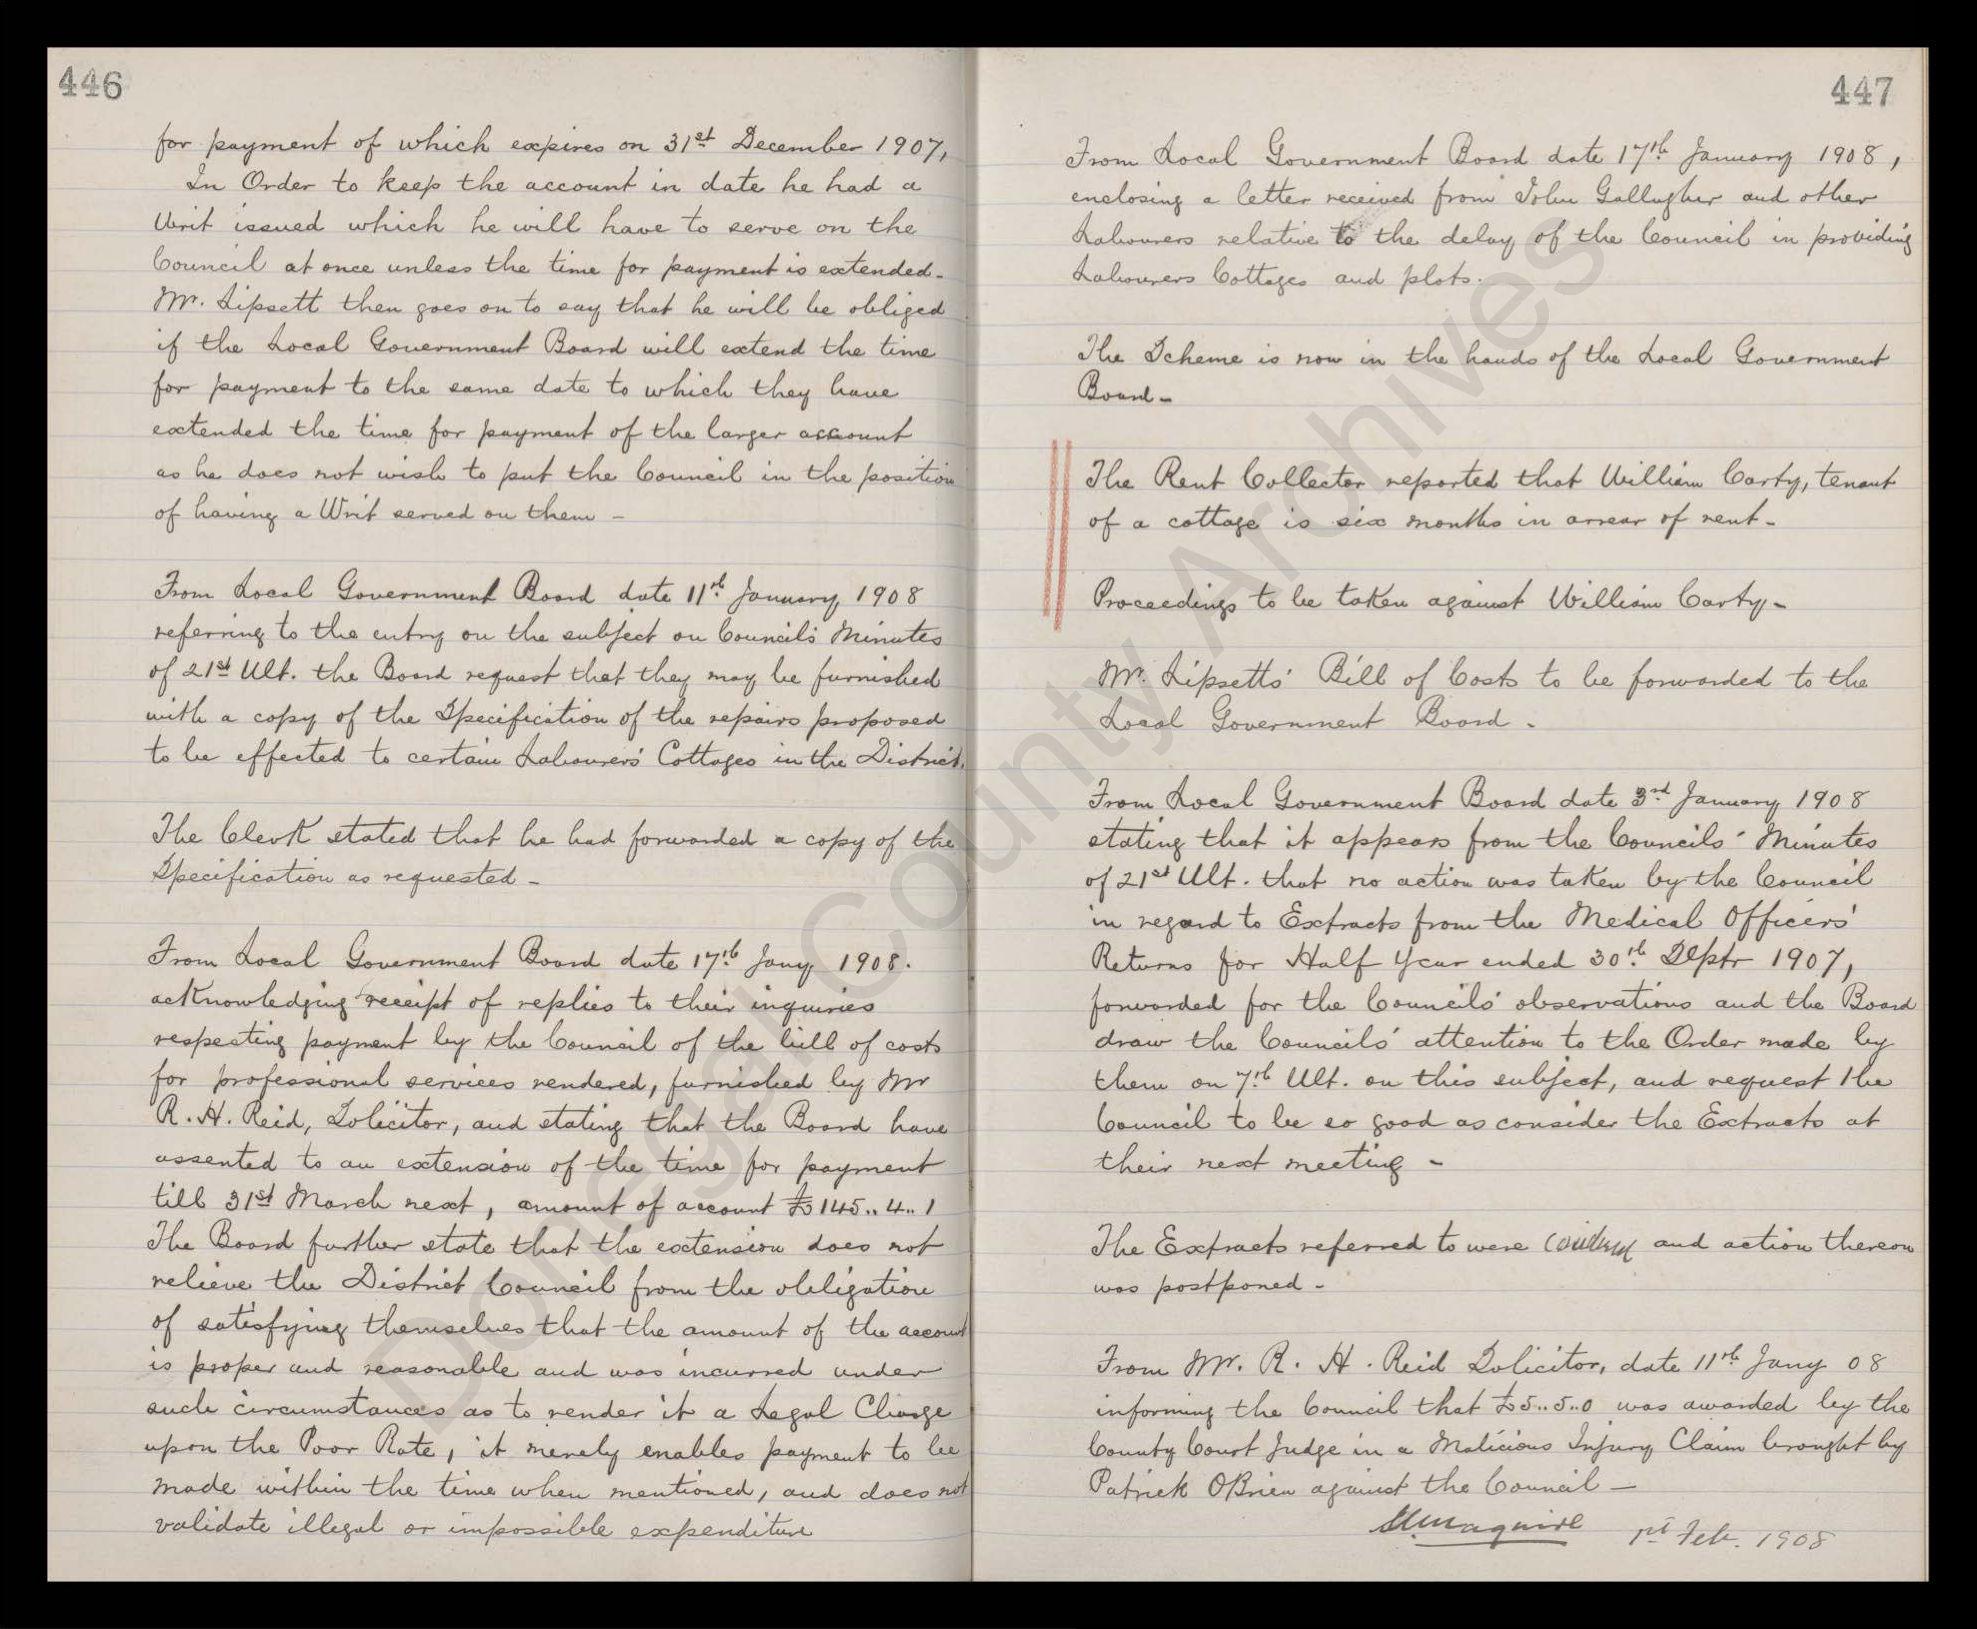 446
for payment of which expires on 31st December 1907,
In Order to keep the account in date he had a
Writ issued which he will have to serve on the
Council at once unless the time for payment is extended-
Mr. Lipsett then goes on to say that he will be obliged
if the Local Government Board will extend the time
for payment to the same date to which they have
extended the time for payment of the larger account
as he does not wish to put the Council in the position
of having a Writ served on them -
From Local Government Board date 11th January 1908
referring to the entry on the subject on Council's Minutes
of 21st Ult. the Board request that they may be furnished
with a copy of the Specification of the repairs proposed
to be effected to certain Labourers' Cottages in the District.
The Clerk stated that he had forwarded a copy of the
Specification as requested -
From Local Government Board date 17th Jany 1908.
acknowledging receipt of replies to their inquiries
respecting payment by the Council of the bill of costs
for professional services rendered, furnished by Mr
R. H. Reid, Solicitor, and stating that the Board have
assented to an extension of the time for payment
till 31st March next, amount of account £145..4..1
The Board further state that the extension does not
relieve the District Council from the obligation
of satisfying themselves that the amount of the account
is proper and reasonable and was incurred under
such circumstances as to render it a Legal Charge
upon the Poor Rate, it merely enables payment to be
made within the time when mentioned, and does not
validate illegal or impossible expenditure
447
From Local Government Board date 17th January 1908,
enclosing a letter received from John Gallagher and other
Labourers relative to the delay of the Council in providing
Labourers Cottages and plots.
The Scheme is now in the hands of the Local Government
Board-
The Rent Collector reported that William Carty, tenant
of a cottage is six months in arrear of rent-
Proceedings to be taken against William Carty-
Mr. Lipsetts' Bill of Costs to be forwarded to the
Local Government Board -
From Local Government Board date 3rd January 1908
stating that it appears from the Councils' Minutes
of 21st Ult. that no action was taken by the Council
in regard to Extracts from the Medical Officers'
Returns for Half Year ended 30th Septr 1907,
forwarded for the Councils' observations and the Board
draw the Councils' attention to the Order made by
them on 7th Ult. on this subject, and request the
Council to be so good as consider the Extracts at
their next meeting -
The Extracts referred to were considered and action thereon
was postponed -
From Mr. R. H. Reid Solicitor, date 11th Jany 08
informing the Council that £5..5..0 was awarded by the
County Court Judge in a Malicious Injury Claim brought by
Patrick OBrien against the Council -
Maguire 1st Feb. 1908
Donegal County Archives